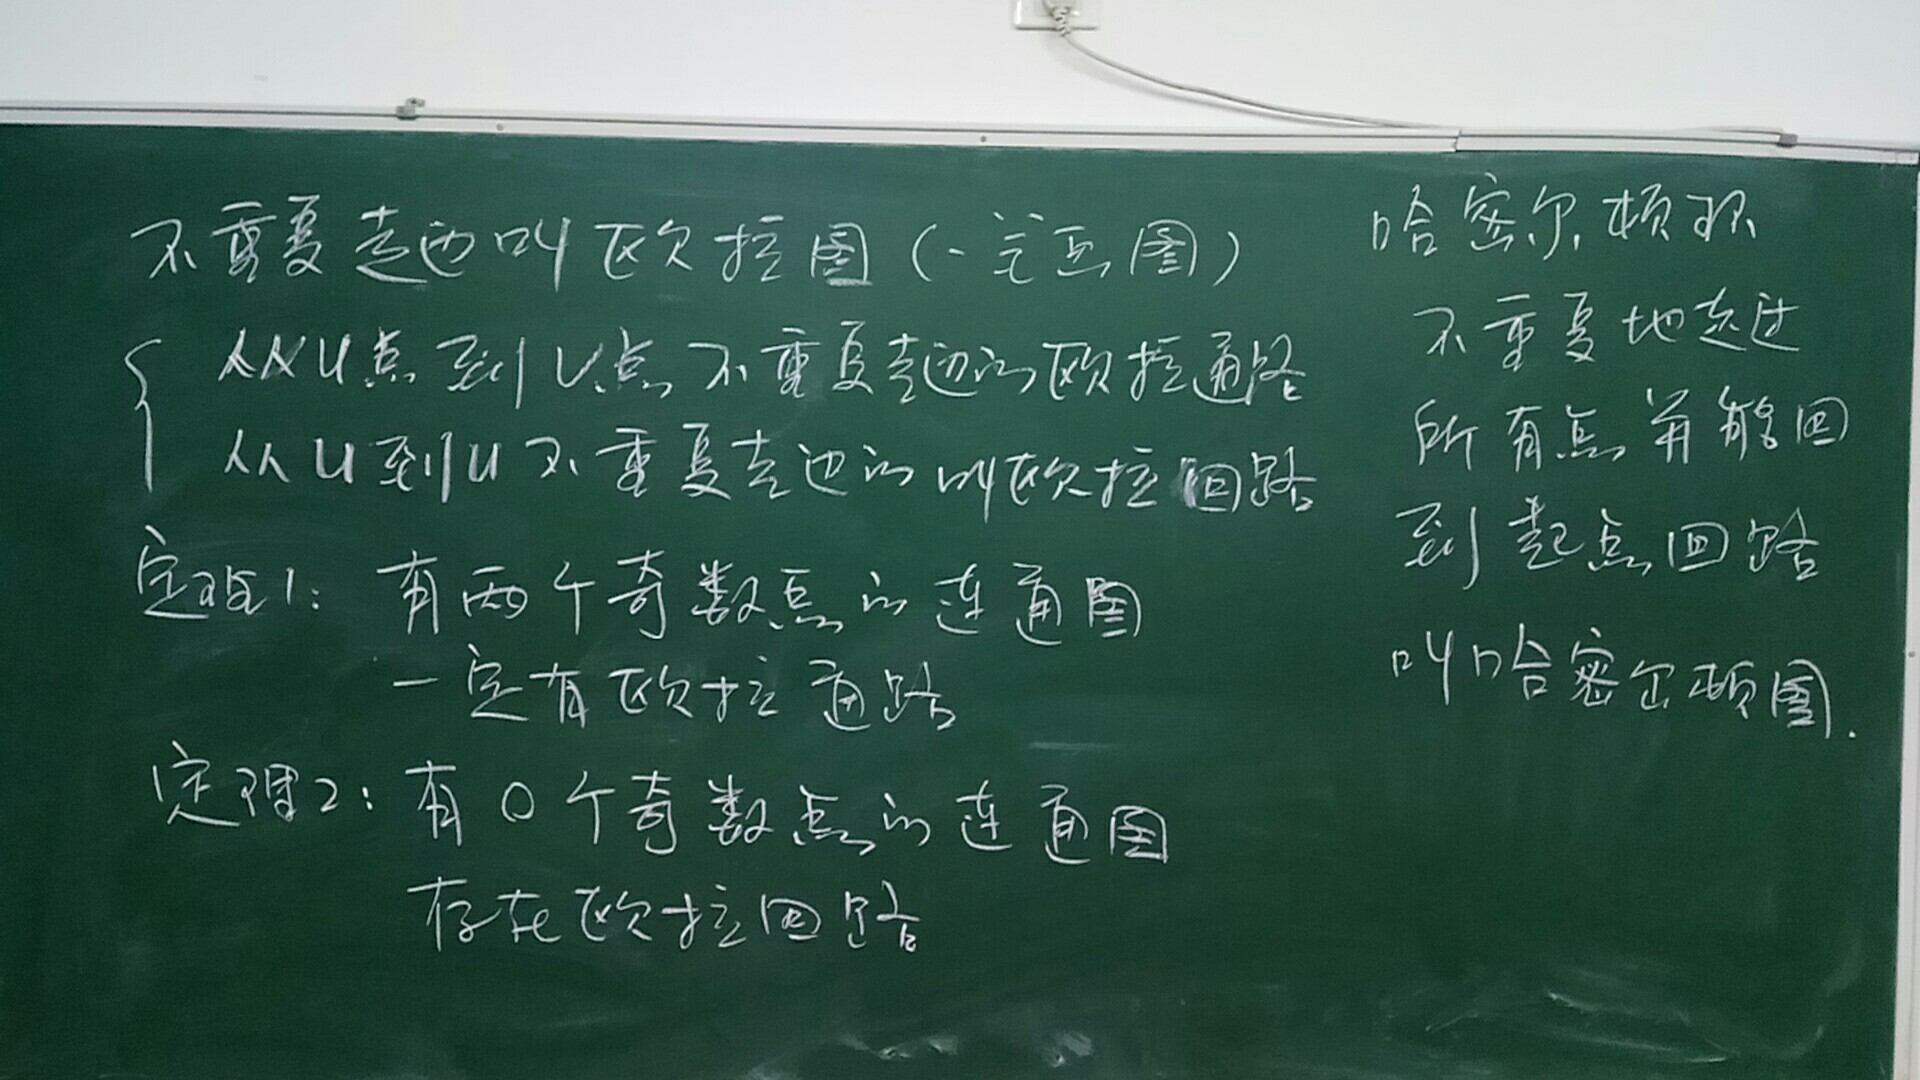 不重复走边叫欧拉图(一笔画图)
从从U点到V点不重复走边的欧拉通路
从U到U不重复走边的叫欧拉回路
定理1: 有两个奇数点的连通图
一定有欧拉通路
定理2: 有0个奇数点的连通图
存在欧拉回路
哈密尔顿环
不重复地走过
所有点并能回
到起点回路
叫哈密尔顿图.